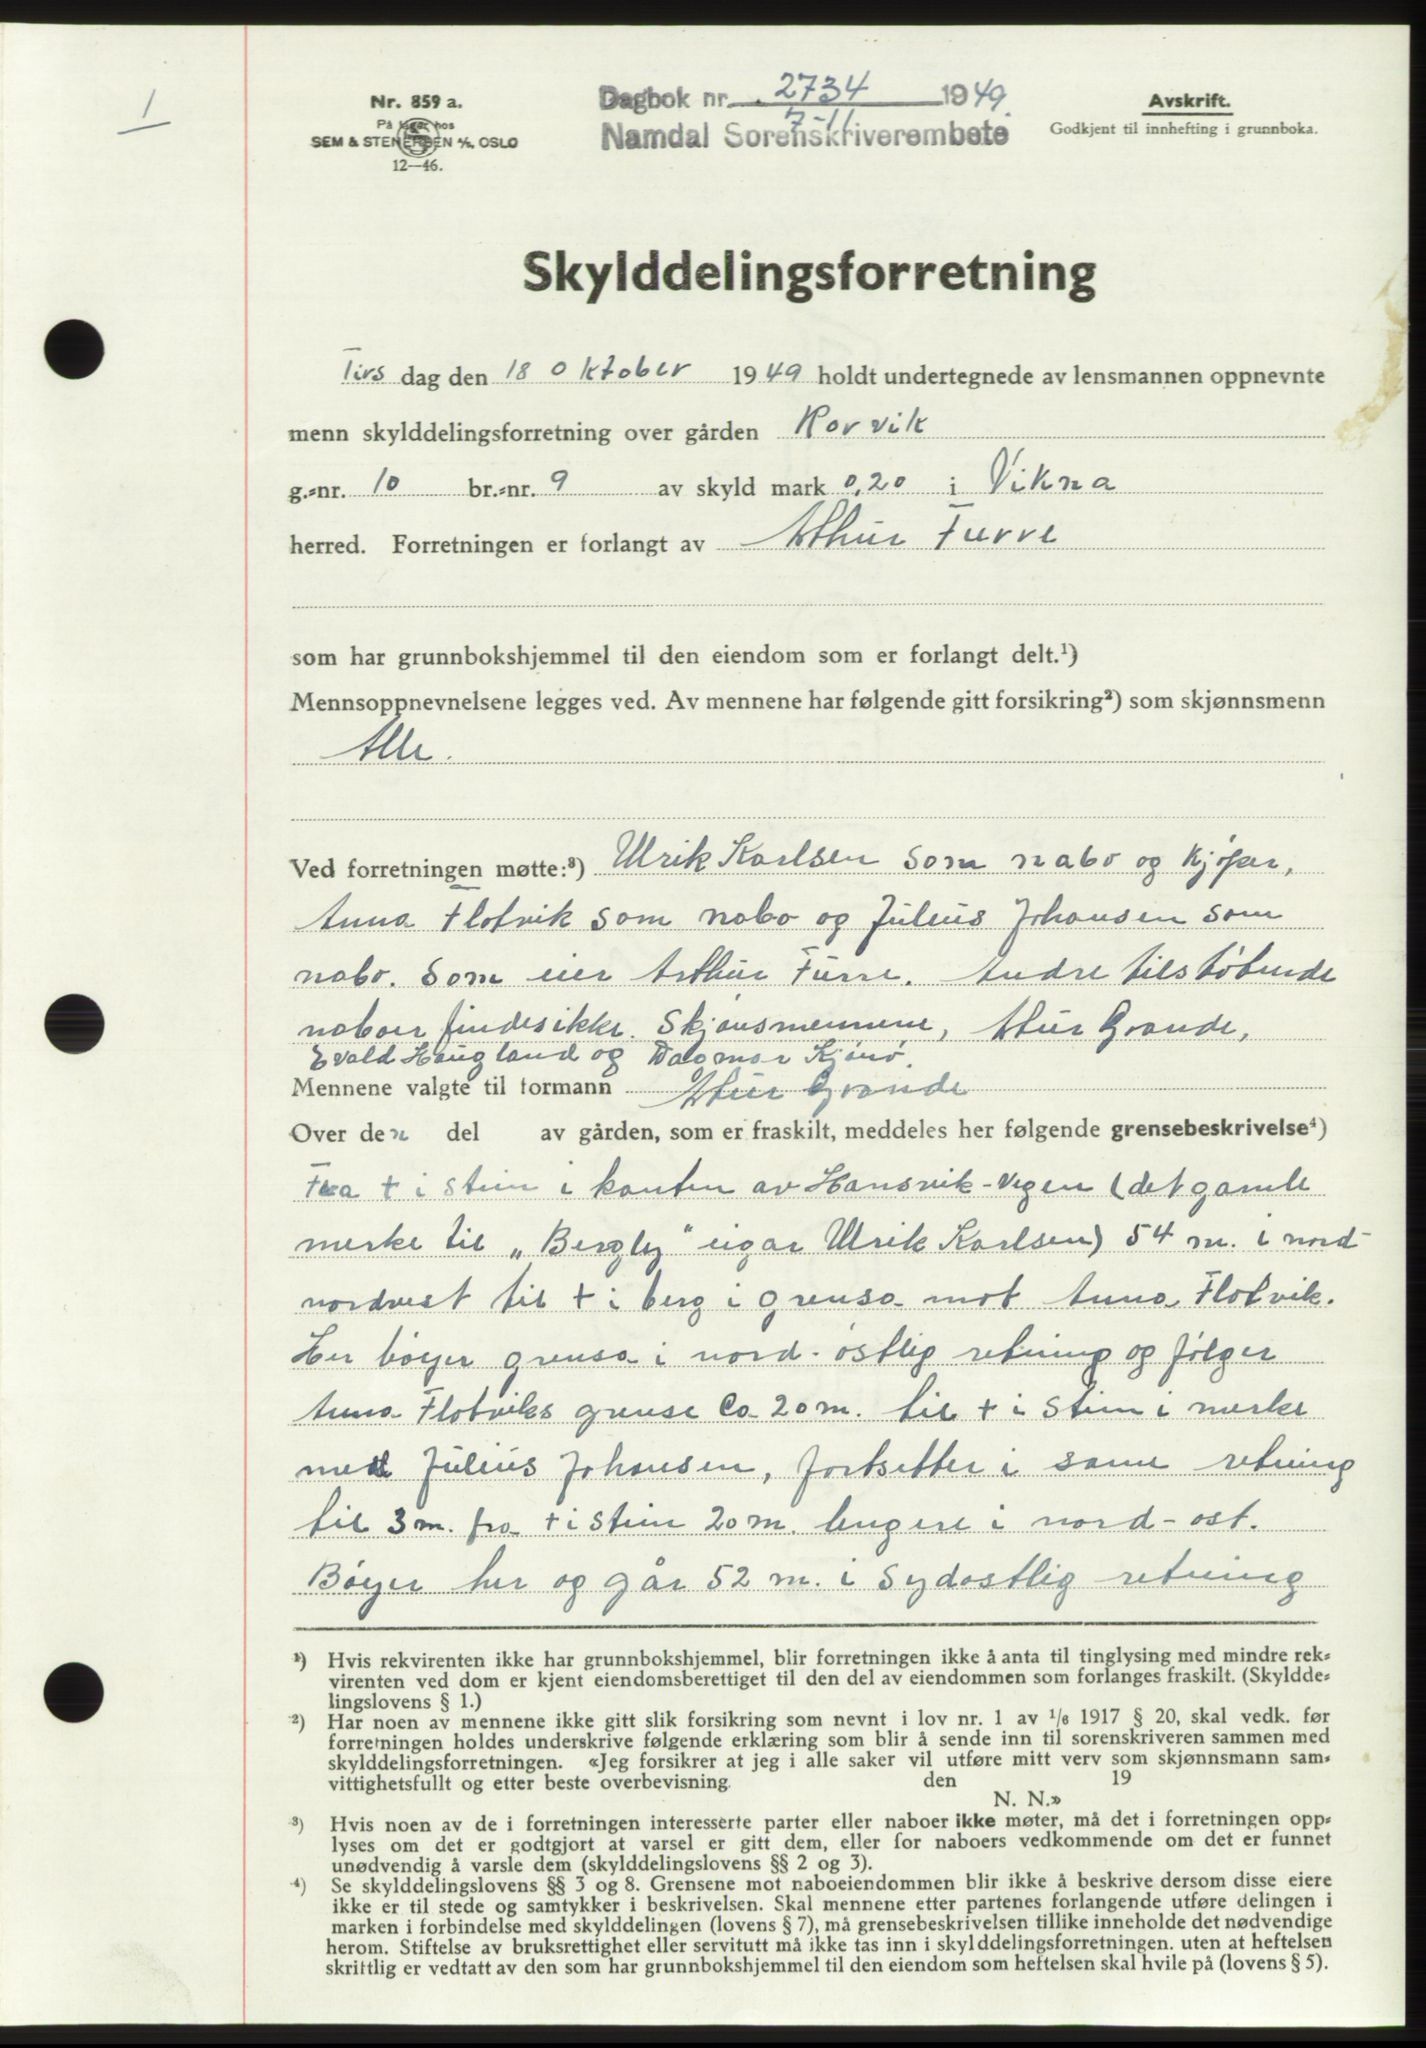 1
Nr. 859 a.
På lager hos
SEM & STENERSEN A/S, OSLO
12—46.
Dagbok nr. 2734 1949.
7-11
Namdal Sorenskriverembete
Avskrift.
Godkjent til innhefting i grunnboka.
Skylddelingsforretning
Tirs dag den 18 oktober 1949 holdt undertegnede av lensmannen oppnevnte
menn skylddelingsforretning over gården Rorvik
g.-nr. 10 br.-nr. 9 av skyld mark 0,20 i Vikna
herred. Forretningen er forlangt av Arthur Furre
som har grunnbokshjemmel til den eiendom som er forlangt delt.¹)
Mennsoppnevnelsene legges ved. Av mennene har følgende gitt forsikring²) som skjønnsmenn
Alle.
Ved forretningen møtte:³) Ulrik Karlsen som nabo og kjøper,
Anna Flotvik som nabo og Julius Johansen som
nabo. Som eier Arthur Furre. Andre tilstøtende
naboer findes ikke. Skjønsmennene, Atur Grande,
Evald Haugland og Dagmar Kjønø.
Mennene valgte til formann Atur Grande
Over den del av gården, som er fraskilt, meddeles her følgende grensebeskrivelse⁴)
Fra + i stein i kanten av Hansvik-vegen (det gamle
merke til „Bergly" eigar Ulrik Karlsen) 54 m. i nord-
nordvest til + i berg i grensa mot Anna Flotvik.
Her bøyer grensa i nord-østlig retning og følger
Anna Flotviks grense ca 20 m. til + i stein i merke
med Julius Johansen, fortsetter i same retning
til 3 m. fra + i stein 20 m. lengere i nord-ost.
Bøyer her og går 52 m. i sydostlig retning
¹) Hvis rekvirenten ikke har grunnbokshjemmel, blir forretningen ikke å anta til tinglysing med mindre rek-
virenten ved dom er kjent eiendomsberettiget til den del av eiendommen som forlanges fraskilt. (Skyldde-
lingslovens § 1.)
²) Har noen av mennene ikke gitt slik forsikring som nevnt i lov nr. 1 av 1/6 1917 § 20, skal vedk. før
forretningen holdes underskrive følgende erklæring som blir å sende inn til sorenskriveren sammen med
skylddelingsforretningen. «Jeg forsikrer at jeg i alle saker vil utføre mitt verv som skjønnsmann sam-
vittighetsfullt og etter beste overbevisning. den 19
N. N.»
³) Hvis noen av de i forretningen interesserte parter eller naboer ikke møter, må det i forretningen opp-
lyses om det er godtgjort at varsel er gitt dem, eller for naboers vedkommende om det er funnet
unødvendig å varsle dem (skylddelingslovens §§ 2 og 3).
⁴) Se skylddelingslovens §§ 3 og 8. Grensene mot naboeiendommen blir ikke å beskrive dersom disse eiere
ikke er til stede og samtykker i beskrivelsen. Skal mennene etter partenes forlangende utføre delingen i
marken i forbindelse med skylddelingen (lovens § 7), må grensebeskrivelsen tillike inneholde det nødvendige
herom. Stiftelse av bruksrettighet eller servitutt må ikke tas inn i skylddelingsforretningen, uten at heftelsen
skriftlig er vedtatt av den som har grunnbokshjemmel til den eiendom som heftelsen skal hvile på (lovens § 5).